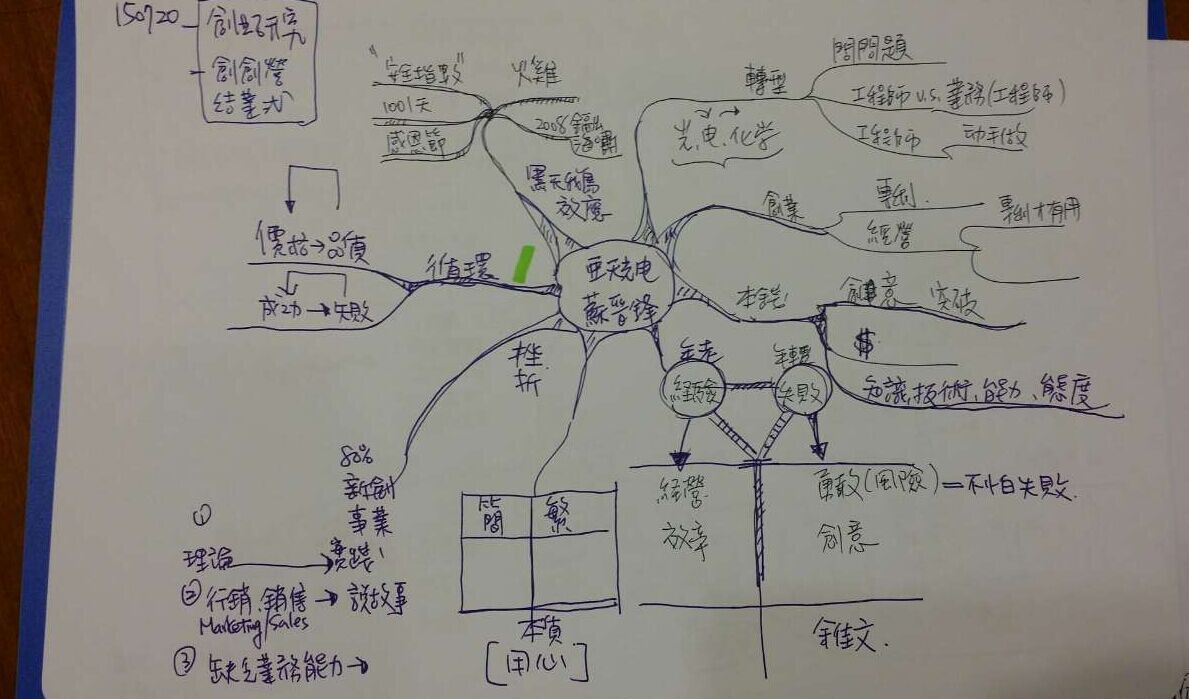 150720
創業研究
創創營
結業式
"安全指數"
1001天
感恩節
火雞
2008金融
海嘯
黑天鵝
效應
轉型
光、电、化学
問問題
工程師 v.s. 業務(工程師)
工程師
动手做
創業
專利
經營
專利才有用
亞天光电
蘇晉鋒
循環
價格→品質
成功→失敗
本能
創意 突破
$
知識、技術、能力、態度
挫
折
年老
經驗
年輕
失敗
經營
效率
勇敢(風險)=不怕失敗.
創意
80%
新創
事業
①
理論
實踐
② 行銷、銷售→說故事
Marketing/Sales
③ 缺乏業務能力→
簡
繁
本質
[用心]